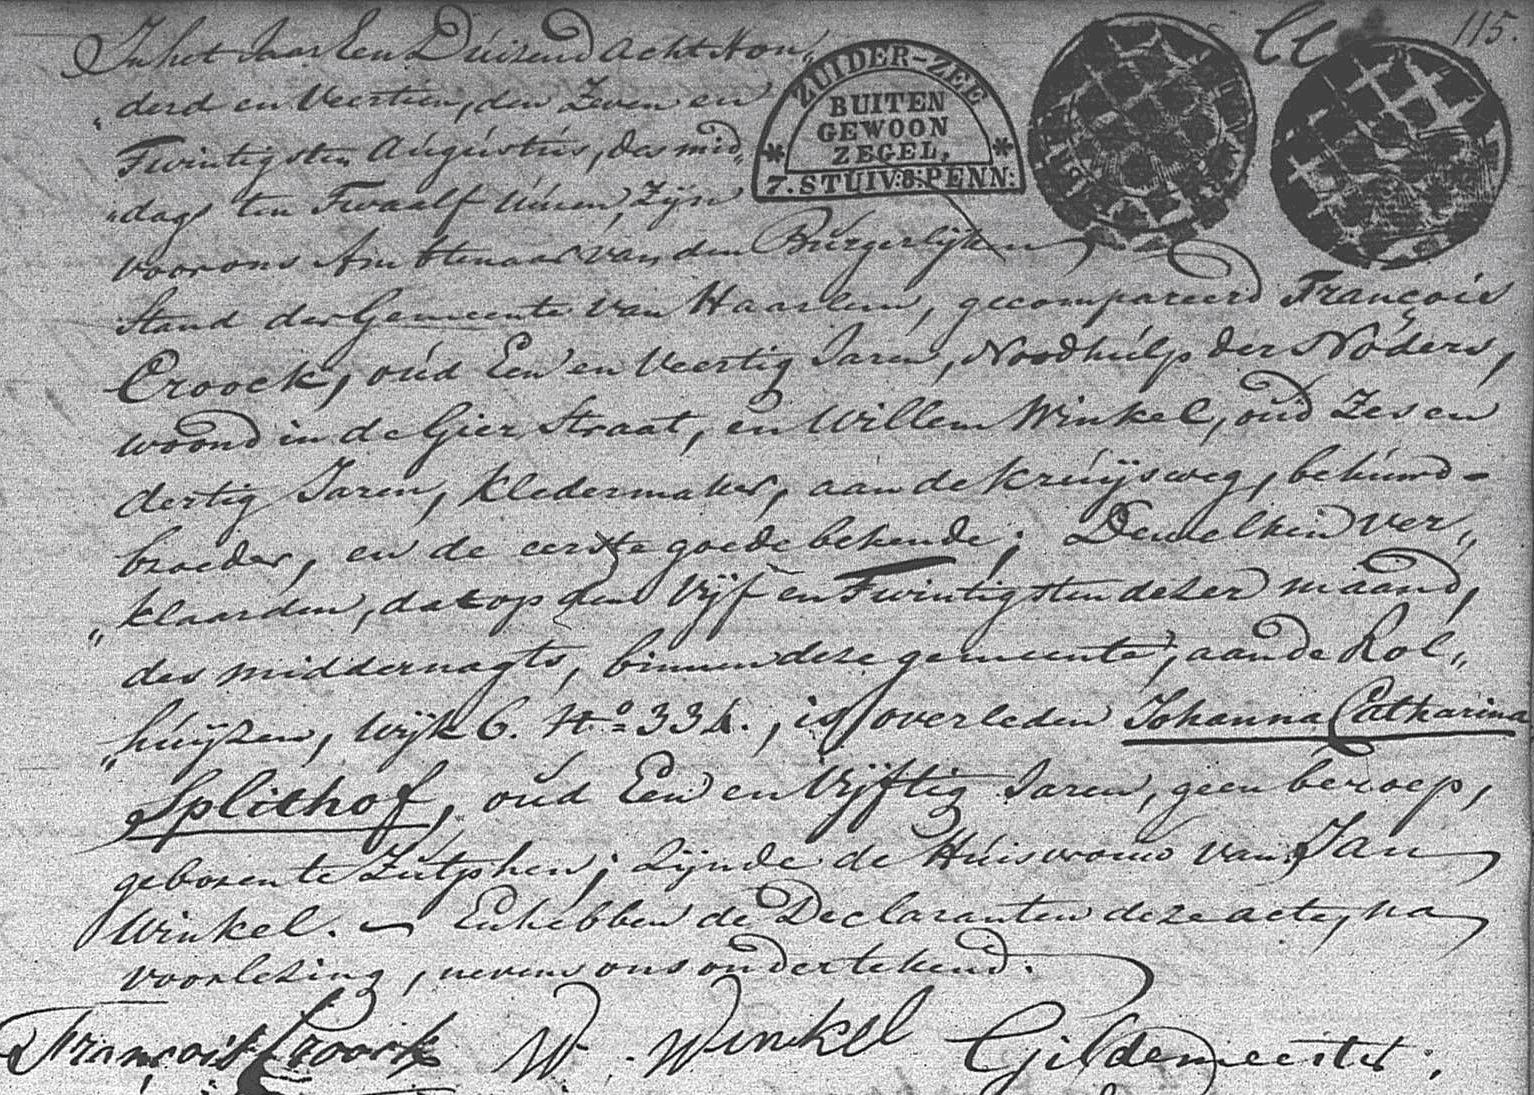 115.
ZUIDER-ZEE
BUITEN
GEWOON
ZEGEL.
7. STUIV: 8: PENN:
In het Jaar Een Duizend Acht Hon„
„derd en Veertien, den Zeven en
Twintigsten Augústús, des mid„
„dags ten Twaalf úúren, Zijn
voor ons Ambtenaar van den Búrgerlijken
Stand der Gemeente van Haarlem, gecompareerd François
Croock, oúd Een en Veertig Jaren, Noodhúlp der Nóders,
woond in de Gier Straat, en Willem Winkel, oúd Zes en
dertig Jaren, Kledermaker, aan de Krúijsweg, behúwd=
broeder, en de eerste goede bekende; Dewelken ver„
„klaarden, dat op den Vijf en Twintigsten dezer maand,
des middernagts, binnen deze gemeente, aan de Rol„
„húijzen, Wijk 6. No= 334., is overleden Johanna Catharina
Splithof, oúd Een en Vijftig Jaren, geen beroep,
geboren te Zútphen; Zijnde de Húisvrouw van Jan
Winkel. — En hebben de Declaranten deze acte, na
voorlezing, nevens ons ondertekend.
François Croock W. Winkel Gildemeester.